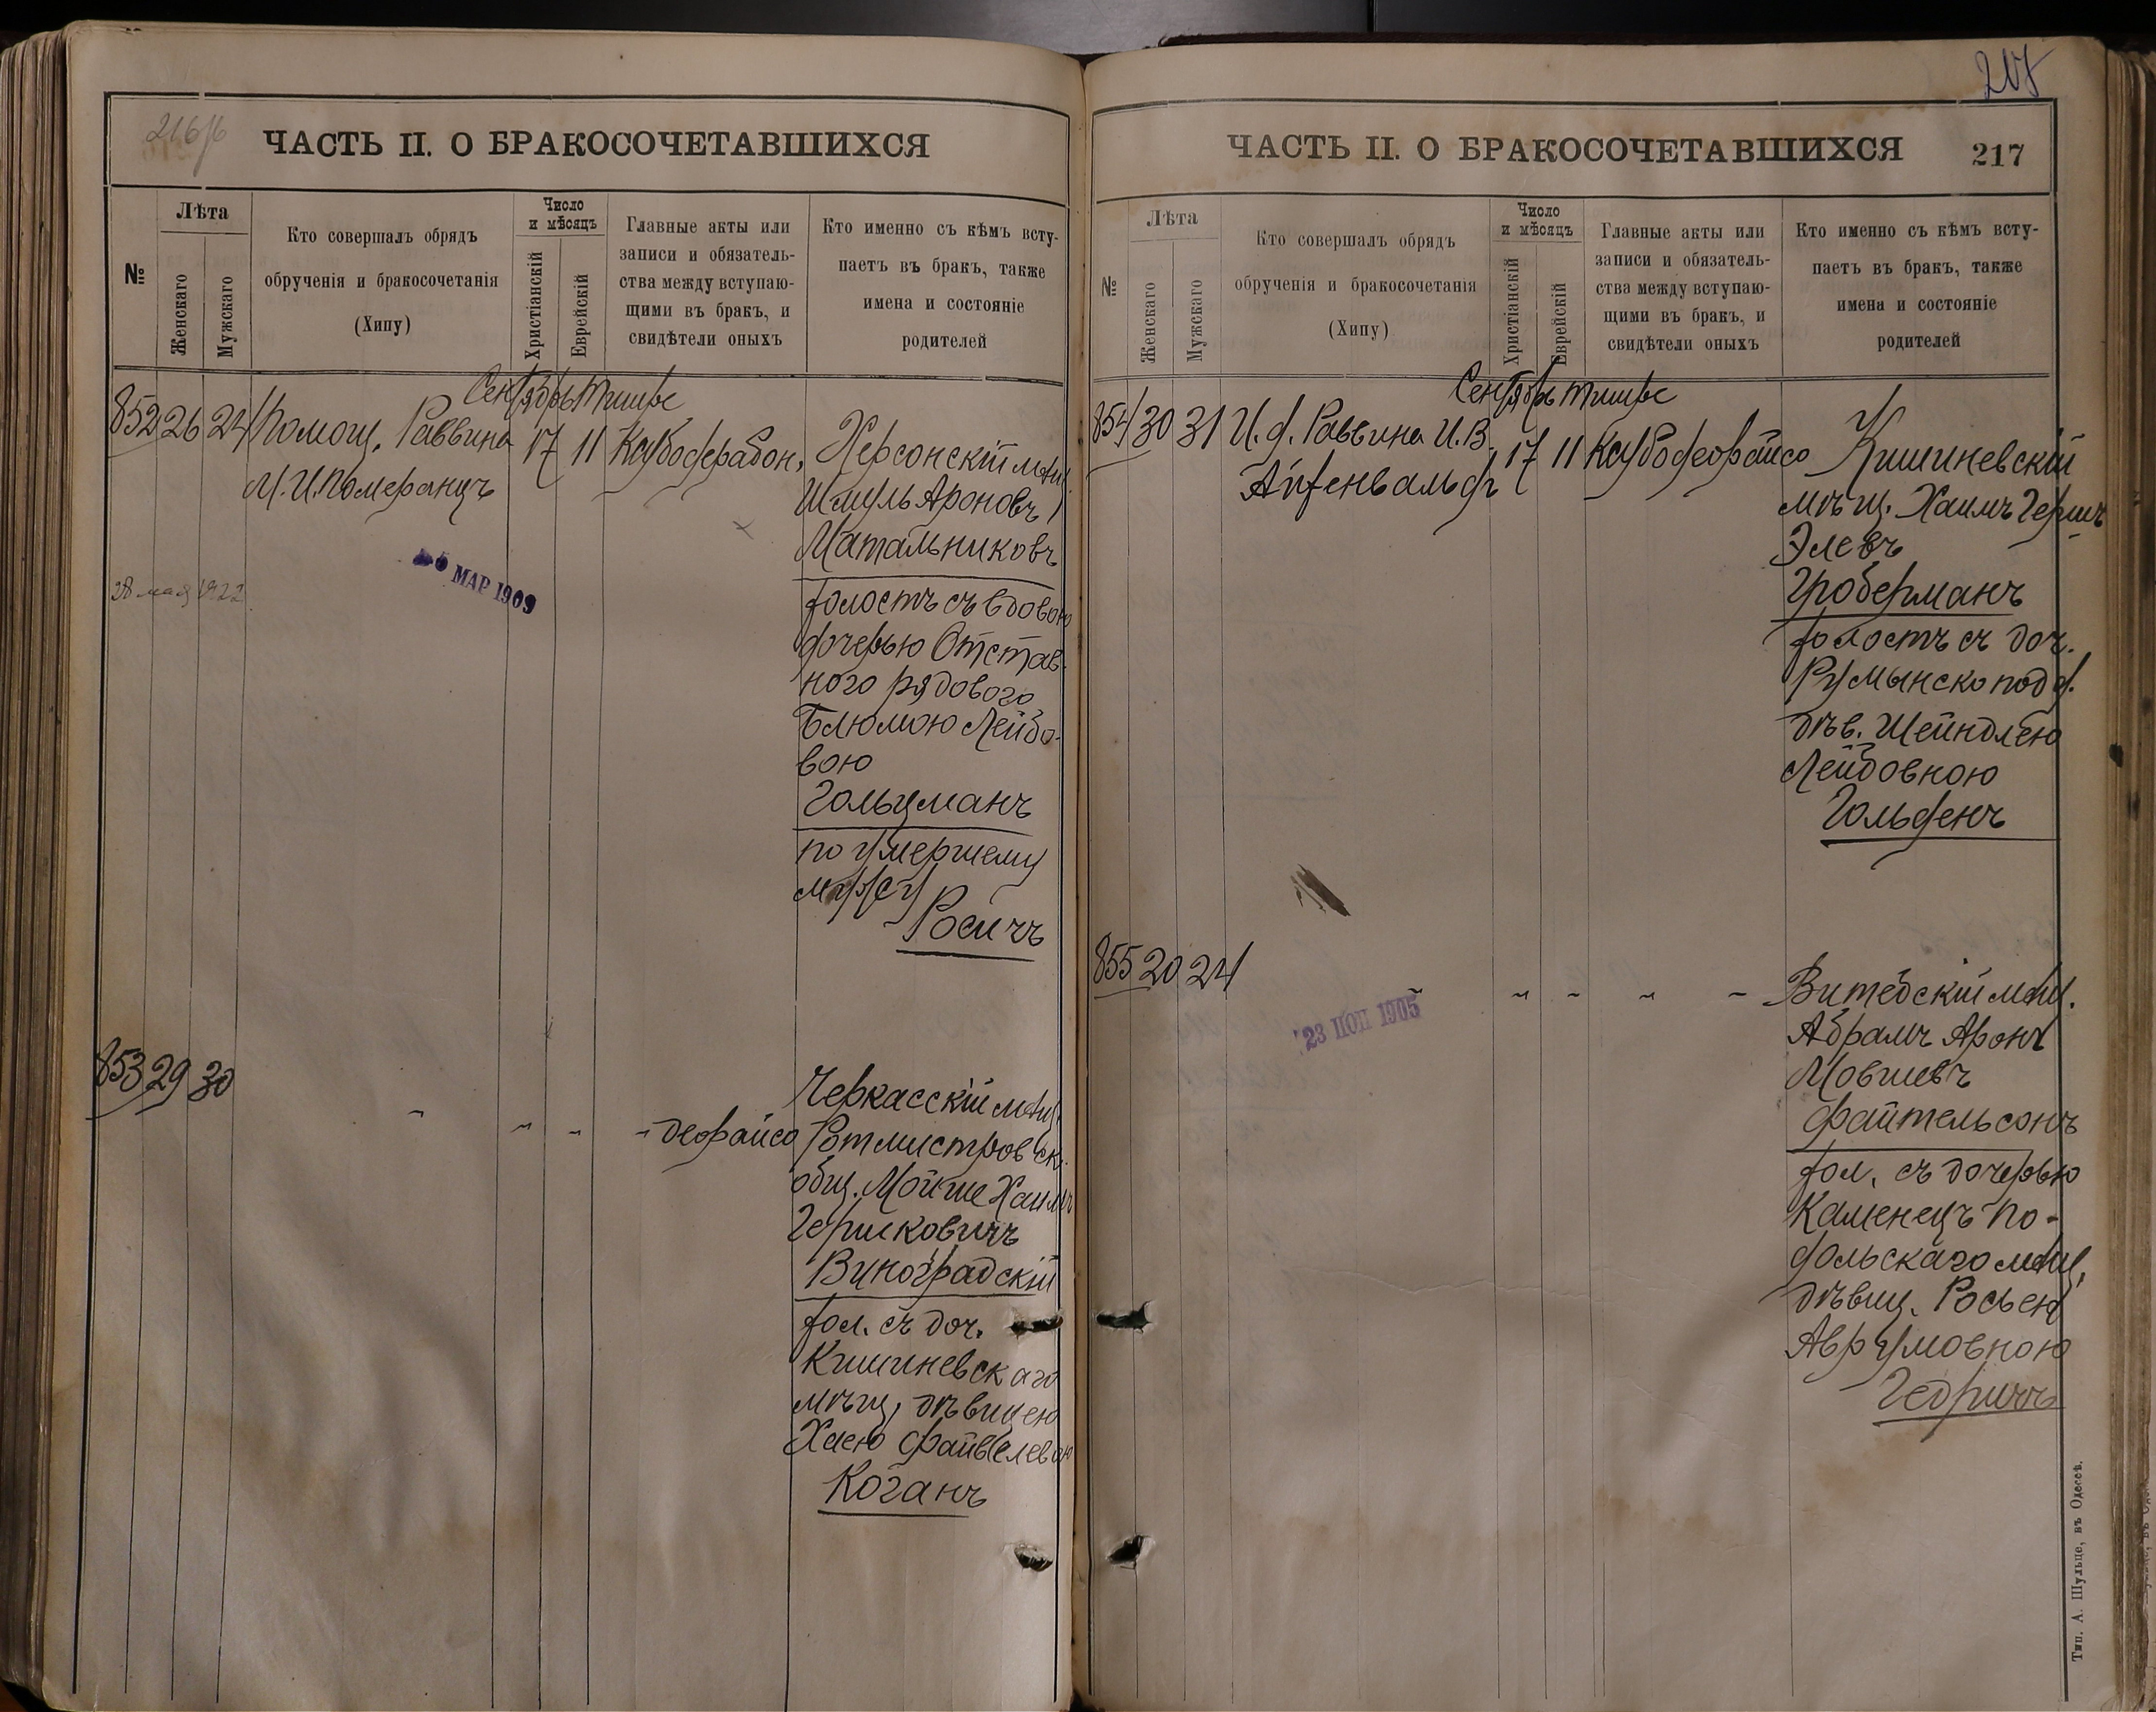 216
ЧАСТЬ II. О БРАКОСОЧЕТАВШИХСЯ
№
Лѣта
Женскаго
Мужскаго
Кто совершалъ обрядъ
обрученія и бракосочетанія
(Хипу)
Число
и мѣсяцъ
Христіанскій
Еврейскій
Главные акты или
записи и обязатель-
ства между вступаю-
щими въ бракъ, и
свидѣтели оныхъ
Кто именно съ кѣмъ всту-
паетъ въ бракъ, также
имена и состояніе
родителей
Сентябрь тишре
852 26 24 Помощ. Раввина 17 11
М. И. Померанцъ
МАР 1909
28 мая 1922
Херсонскій мѣщ.
Шмуль Ароновъ
Матальниковъ
холостъ съ вдовою
дочерью Отстав-
ного рядового
Блюмою Лейбо-
вою
Гольцманъ
по умершему
мужу
Росичъ
853 29 30 " " " " деофайсо
Черкасскій мѣщ.
Ротмистровск.
общ. Мойше Хаимъ
Гершковичъ
Виноградскій
хол. съ доч.
Кишиневскаго
мѣщ. дѣвицею
Хаею Файвелевою
Коганъ
207
ЧАСТЬ II. О БРАКОСОЧЕТАВШИХСЯ
217
№
Лѣта
Женскаго
Мужскаго
Кто совершалъ обрядъ
обрученія и бракосочетанія
(Хипу)
Число
и мѣсяцъ
Христіанскій
Еврейскій
Главные акты или
записи и обязатель-
ства между вступаю-
щими въ бракъ, и
свидѣтели оныхъ
Кто именно съ кѣмъ всту-
паетъ въ бракъ, также
имена и состояніе
родителей
Сентябрь тишре
854 30 31 И. д. Раввина И. В. 17 11
Айзенвальдъ
Кишиневскій
мѣщ. Хаимъ Гершъ
Элевъ
Гроберманъ
холостъ съ доч.
Румынско подд.
дѣв. Шейндлею
Лейбовною
Гольденъ
855 20 24 " " " " "
23 ІЮН 1905
Витебскій мѣщ.
Абрамъ Аронъ
Мовшевъ
Файтельсонъ
хол. съ дочерью
Каменецъ По-
дольскаго мѣщ.
дѣвиц. Росьею
Аврумовною
Гедричъ
Тип. А. Шульце, въ Одессѣ.